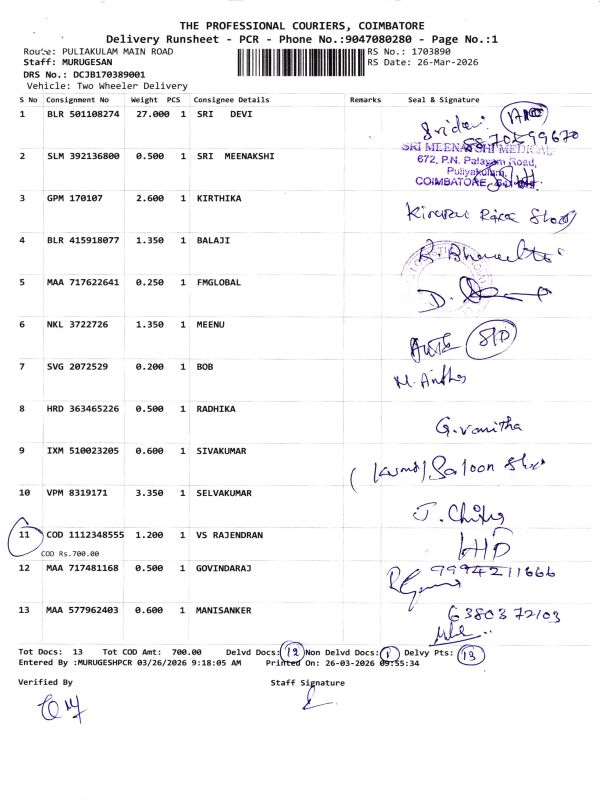 THE PROFESSIONAL COURIERS, COIMBATORE
Delivery Runsheet - PCR - Phone No.:9047080280 - Page No.:1
Route: PULIAKULAM MAIN ROAD RS No.: 1703890
Staff: MURUGESAN RS Date: 26-Mar-2026
DRS No.: DCJB170389001
Vehicle: Two Wheeler Delivery
S No Consignment No Weight PCS Consignee Details Remarks Seal & Signature
1 BLR 501108274 27.000 1 SRI DEVI Sridevi
2 SLM 392136800 0.500 1 SRI MEENAKSHI SRI MEENAKSHI MEDICAL
672, P.N. Palayam Road,
Puliyakulam,
COIMBATORE
3 GPM 170107 2.600 1 KIRTHIKA
4 BLR 415918077 1.350 1 BALAJI
5 MAA 717622641 0.250 1 FMGLOBAL
6 NKL 3722726 1.350 1 MEENU S/D
7 SVG 2072529 0.200 1 BOB
8 HRD 363465226 0.500 1 RADHIKA G.vanitha
9 IXM 510023205 0.600 1 SIVAKUMAR Saloon Shop
10 VPM 8319171 3.350 1 SELVAKUMAR
11 COD 1112348555 1.200 1 VS RAJENDRAN
COD Rs.700.00
12 MAA 717481168 0.500 1 GOVINDARAJ 9994211666
13 MAA 577962403 0.600 1 MANISANKER 6380372103
Tot Docs: 13 Tot COD Amt: 700.00 Delvd Docs: 12 Non Delvd Docs: 1 Delvy Pts: 13
Entered By :MURUGESHPCR 03/26/2026 9:18:05 AM Printed On: 26-03-2026 09:55:34
Verified By Staff Signature